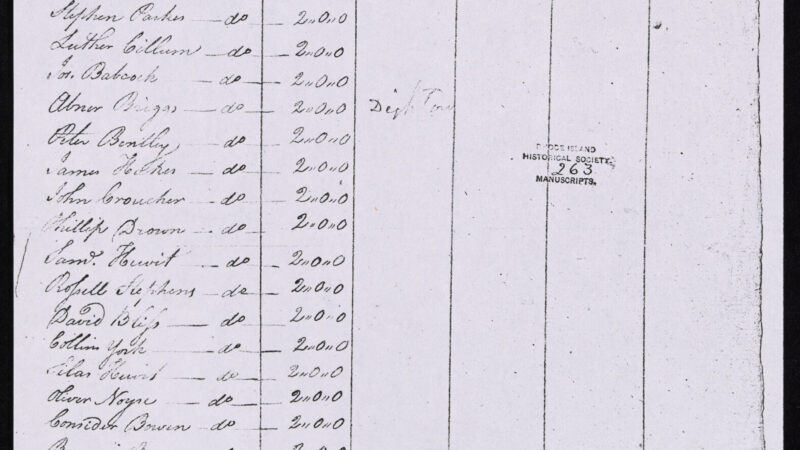 Stephen Parkes — do — 2,,0,,0
Luther Cillum — do — 2,,0,,0
Jos. Babcock — do — 2,,0,,0
Abner Briggs — do — 2,,0,,0
Peter Bentley — do — 2,,0,,0
James — do — 2,,0,,0
John Croucher — do — 2,,0,,0
Phillip Brown — do — 2,,0,,0
Samͩ. Hewit — do — 2,,0,,0
Rossell Stephens — do — 2,,0,,0
David Bliss — do — 2,,0,,0
Collins York — do — 2,,0,,0
Silas Hewit — do — 2,,0,,0
Oliver Noyse — do — 2,,0,,0
Consider Bowen — do — 2,,0,,0
RHODE ISLAND
HISTORICAL SOCIETY.
263
MANUSCRIPTS.